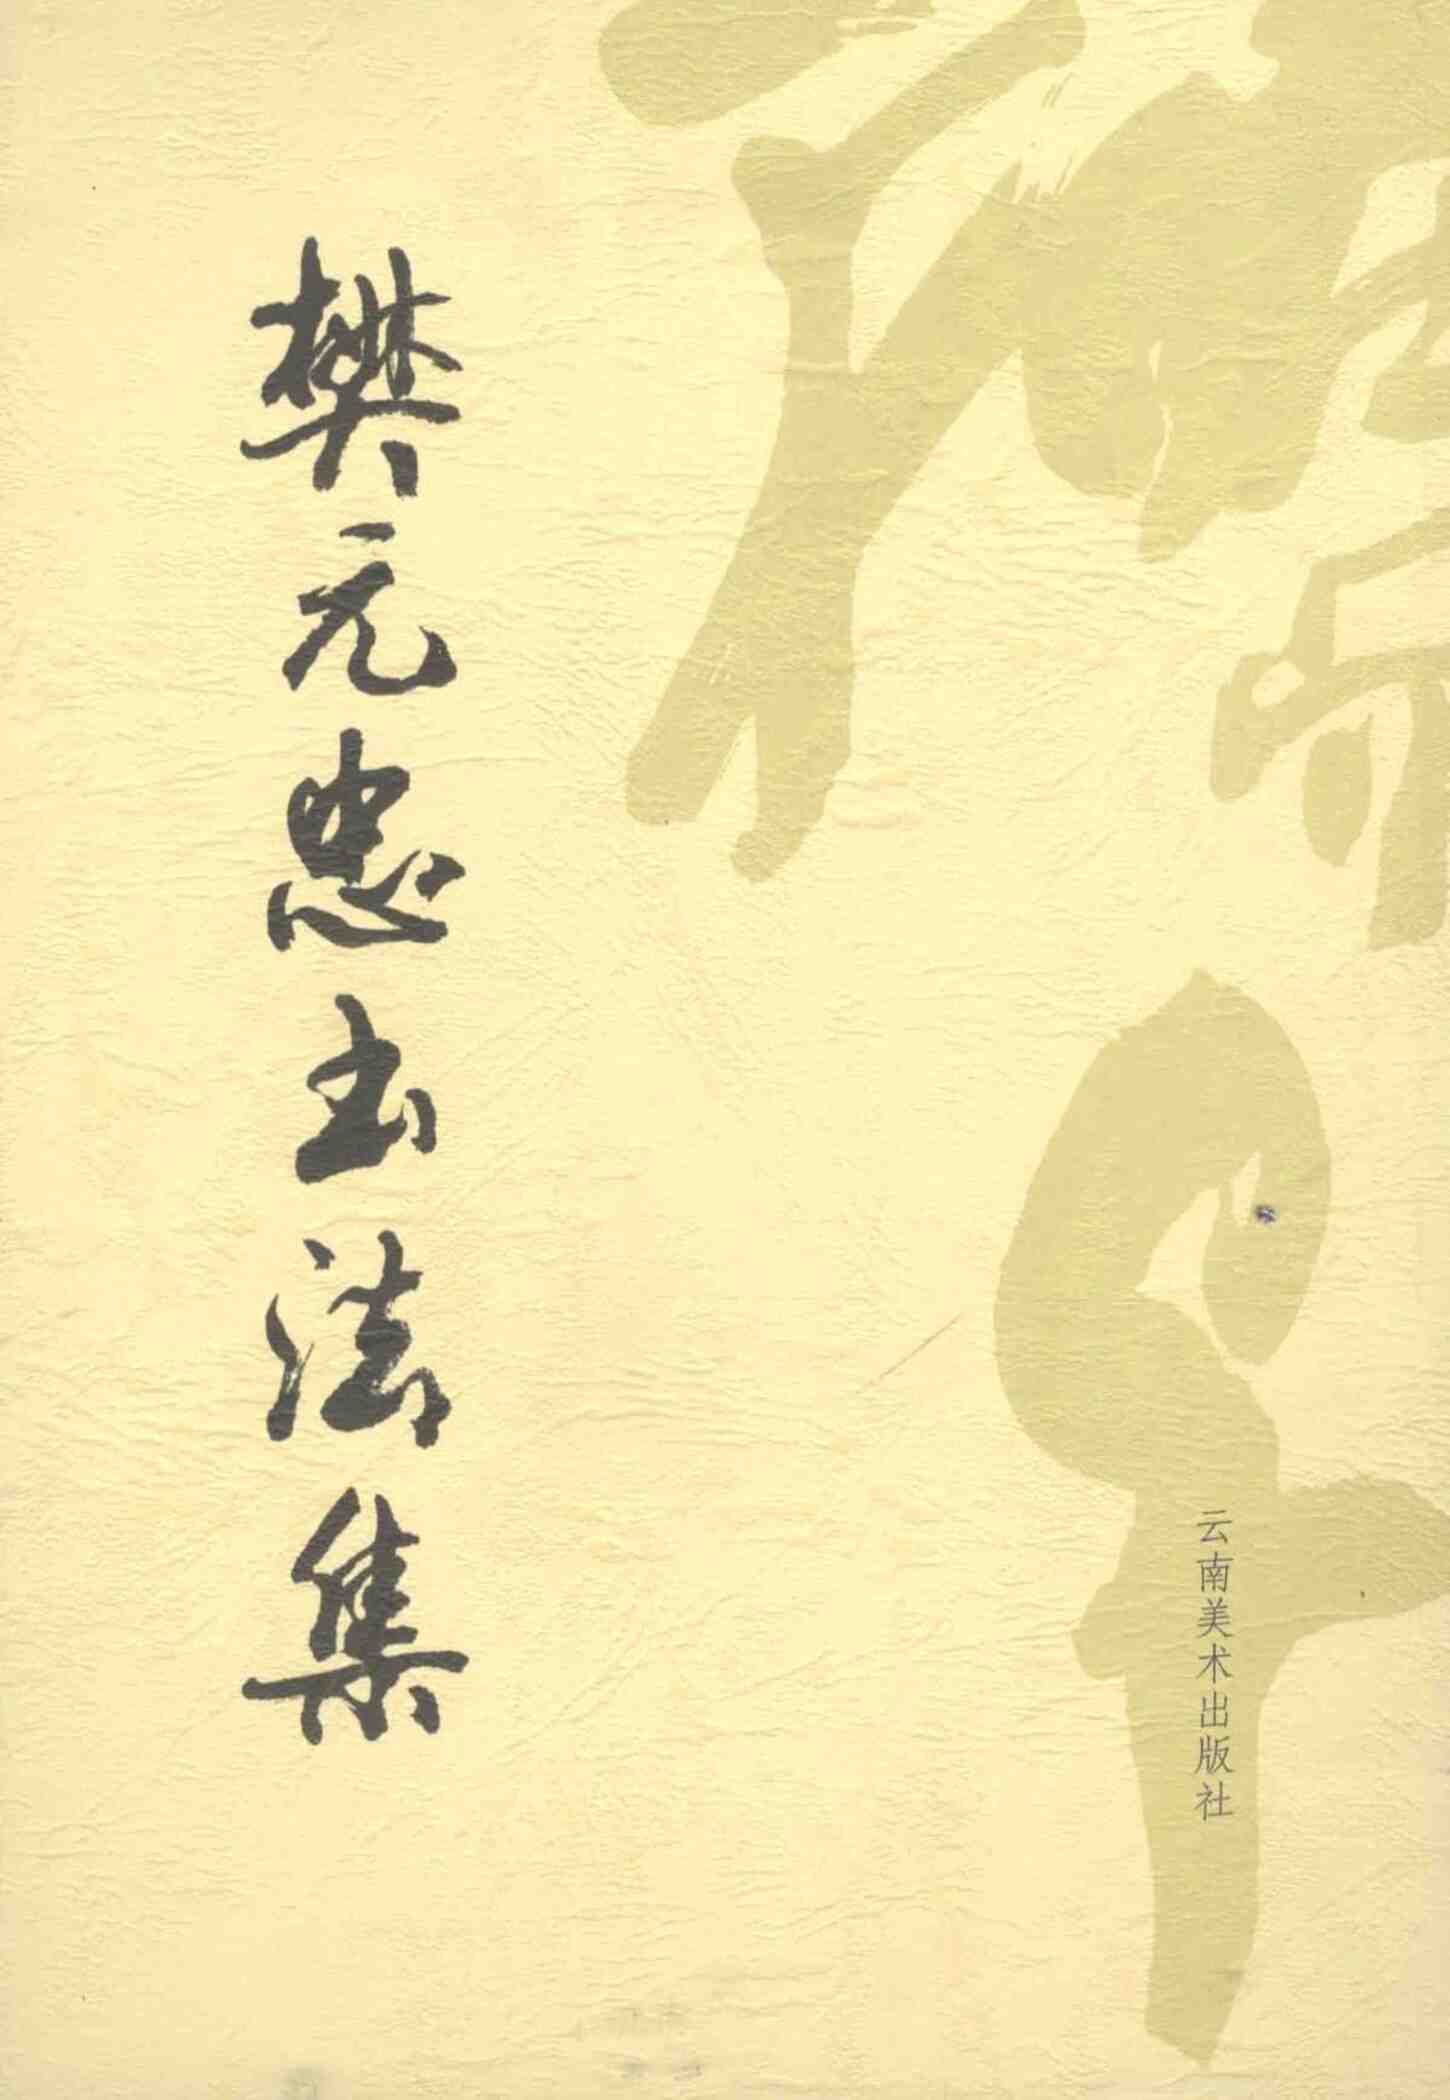 樊元忠书法集
云南美术出版社